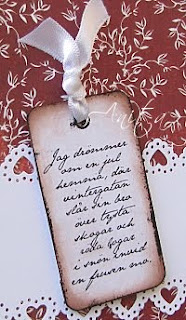 Jag drömmer
om en jul
hemma, där
vintergatan
slår sin bro
över tysta
skogar och
röda stugor
i snön invid
en frusen mo.